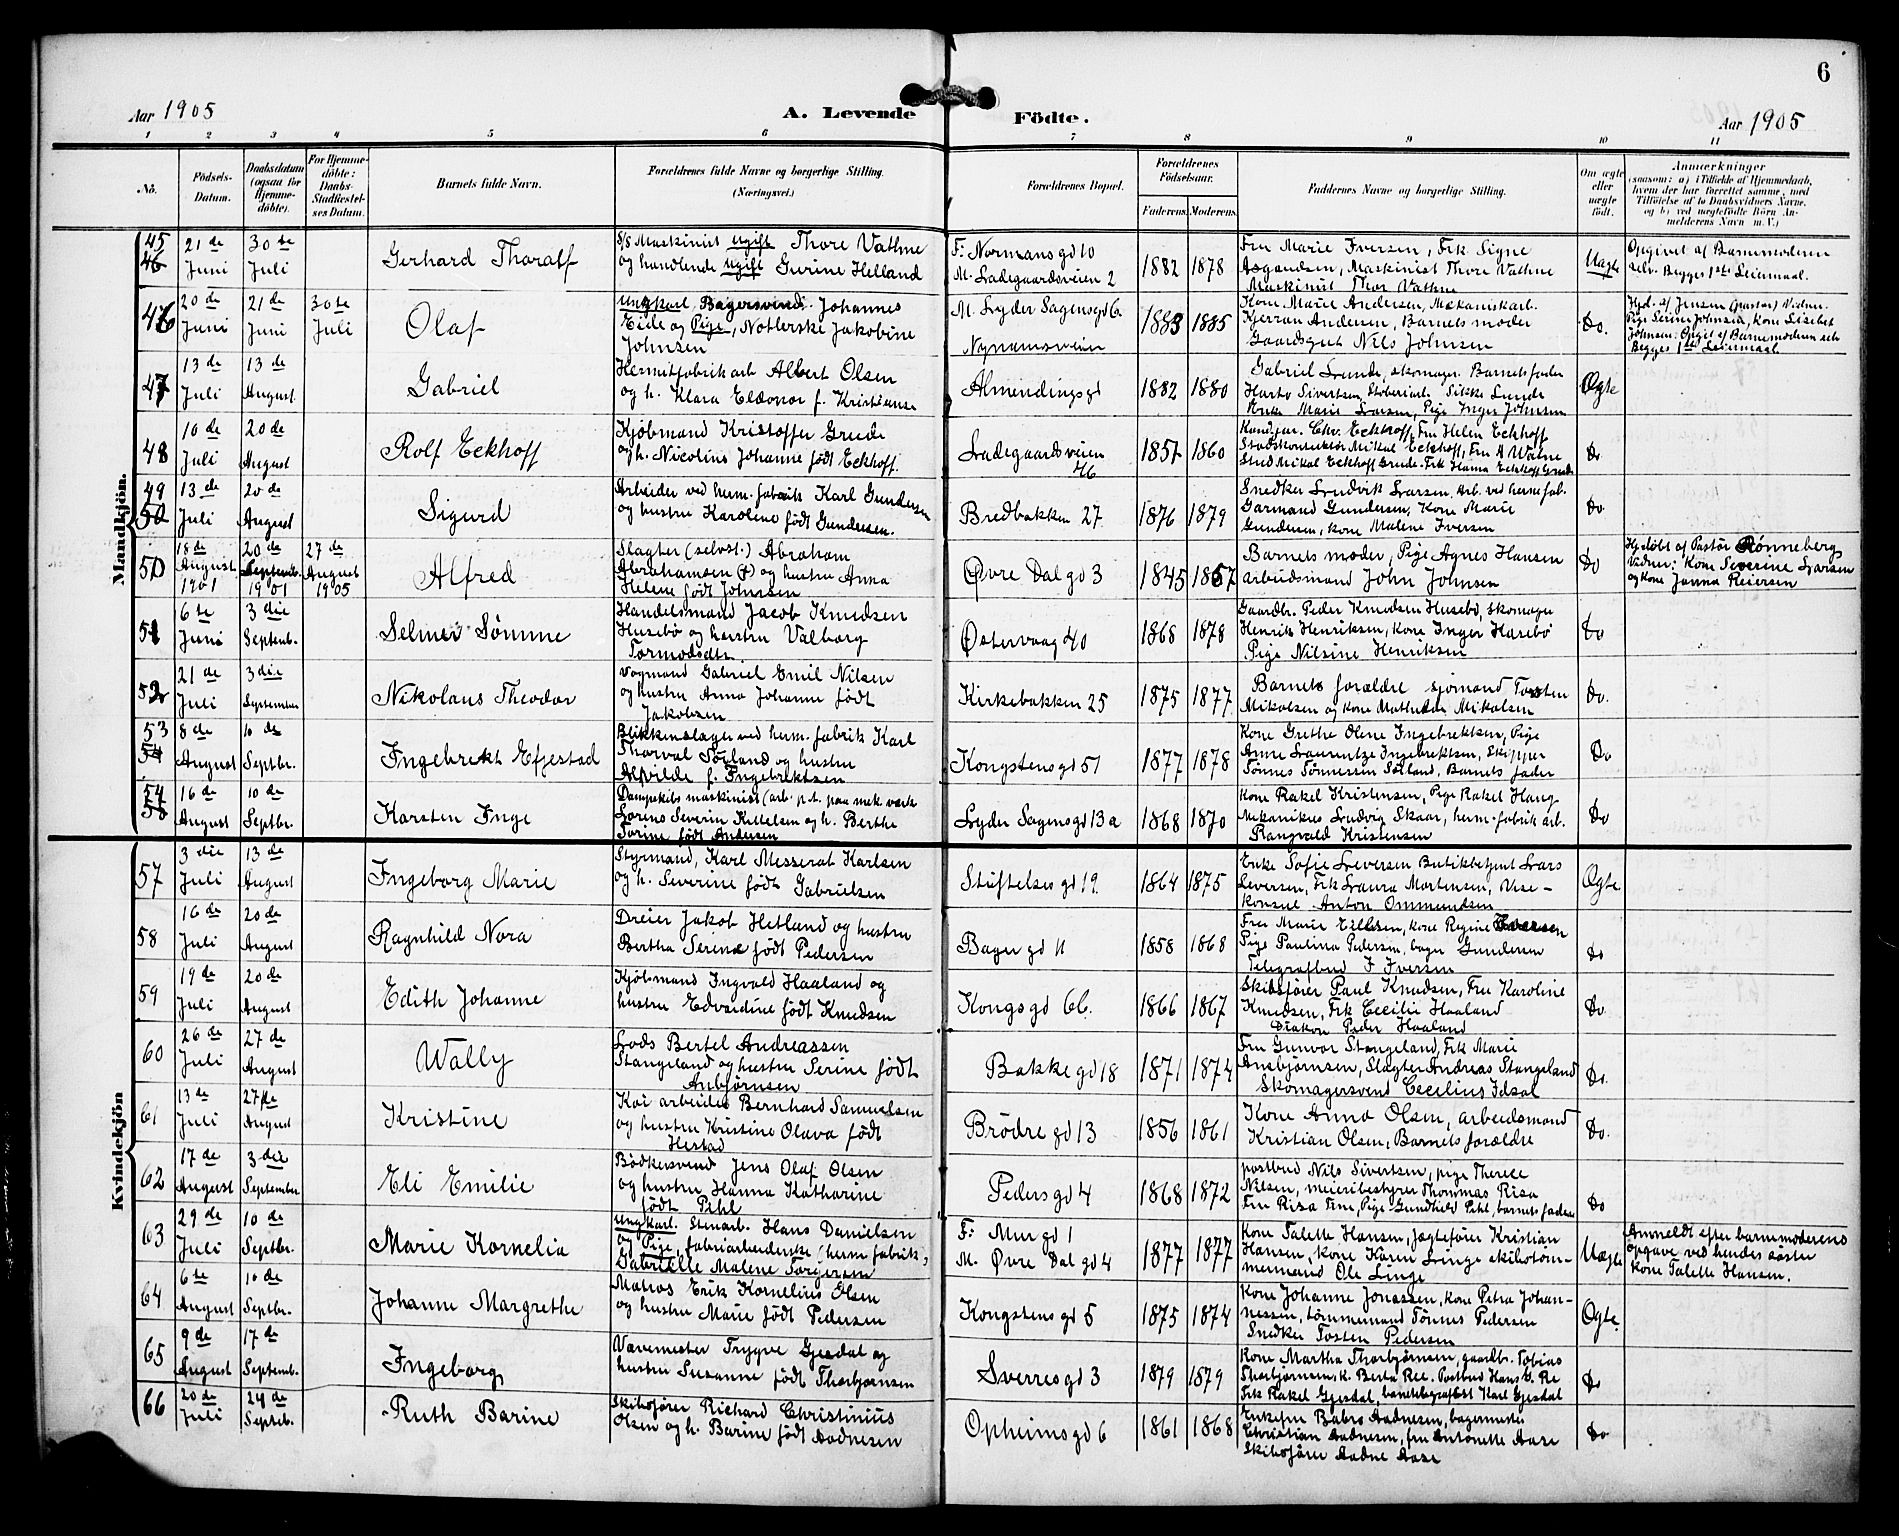 6
Aar 1905
A. Levende Födte.
Aar 1905
1 2 3 4 5 6 7 8 9 10 11
No.
Födsels-
Datum.
Daabsdatum
(ogsaa for
Hjemme-
döbte).
For Hjemme-
döbte:
Daabs-
Stadfæstel-
ses Datum.
Barnets fulde Navn.
Forældrenes fulde Navne og borgerlige Stilling.
(Næringsvei.)
Forældrenes Bopæl.
Forældrenes
Födselsaar.
Faderens. Moderens.
Faddernes Navne og borgerlige Stilling.
Om ægte
eller
uægte
født.
Anmærkninger
(saasom: a) i Tilfælde af Hjemmedaab,
hvem der har forrettet samme, med
Tilföielse af to Daabsvidners Navne,
og b) ved uægtefödte Börn An-
melderens Navn m. V.)
Mandkjön.
45
46
21 de
Juni
30 te
Juli
Gerhard Thoralf
S/S Maskinist ugift Thore Vathne
og handlende ugift Gurine Helland
F: Normansgd 10
M. Ladegaardsveien 2
1882 1878
Fru Marie Iversen, Frk Signe
Asgaudsen, Maskinist Thore Vathne
Maskinist Thor Vathne
Uægte
Opgivet af Barnemoderen
selv. Begges 1ste Leiermaal.
46
20 de
Juni
21 de
Juni
30 te
Juli
Olaf
Ungkarl Bagersvend Johannes
Eide og Pige, Notlerske Jakobine
Johnsen
M. Lyder Sagensgd 6.
Nymansveien
1883 1885
Kone Marie Andersen, Mekanikarb.
Kjerran Andersen, Barnets moder
Gaardsgut Nils Johnsen
Do.
Hjd. af Jensen (pastor) Vidner:
Pige Serine Johnsen, kone Lisebet
Johnsen: Opgit af Barnemoderen selv
Begges 1ste Leiermaal.
47
13 de
Juli
13 de
August
Gabriel
Hermetfabrikarb Albert Olsen
og h. Klara Eleonor f. Kristianse
Almindingsgd
1882 1880
Gabriel Lunde, skomager. Barnets fader
Harto Sivertsen, Støberiarb. Sikke Lunde
Enke Marie Larsen, Pige Inger Johnsen
Ægte
48
10 de
Juli
20 de
August
Rolf Eckhoff
Kjøbmand Kristoffer Grude
og h. Nicoline Johanne født Eckhoff.
Ladegaardsveien
46
1857 1860
Kand jur. Chr. Eckhoff, Fru Helen Eckhoff
Stadskonduktør Mikal Eckhoff, Fru A Walne
Stud Mikal Eckhoff Grude. Frk Hanna Eckhoff Grude
Do
49
50
13 de
Juli
20 de
August
Sigurd
Arbeider ved herm. fabrik Karl Gundersen
og hustru Karoline født Gundersen.
Bredbakken 27.
1876 1879
Snedker Ludvik Larsen, Arb. ved herm fab.
Garmand Gundersen, Kone Marie
Gundersen, kone Malene Iversen
Do
50
18 de
August
1901
20 de
Septemb.
1901
27 de
August
1905
Alfred
Slagter (selvst.) Abraham
Abrahamsen (†) og hustru Anna
Helene født Johnsen
Øvre Dalgd 3
1845 1857
Barnets moder, Pige Agnes Hansen
arbeidsmand John Johnsen
Do
Hjdøbt af Pastor Rønneberg
Vidner: Kone Severine Larsen
og kone Janna Reiersen
51
6 te
Juni
3 die
Septemb.
Selmer Sømme
Handelsmand Jacob Knudsen
Husebø og hustru Valborg
Tormodsdtr
Østervaag 40
1868 1878
Gaardbr. Peder Knudsen Husebø, skomager
Henrik Henriksen, kone Inger Husebø
Pige Nilsine Henriksen
Do
52
21 de
Juli
3 die
September
Nikolaus Theodor
Vogmand Gabriel Emil Nilsen
og hustru Anna Johanne født
Jakobsen
Kirkebakken 25
1875 1877
Barnets forældre sjømand Torsten
Mikalsen og kone Mathilde Mikalsen
Do.
53
54
8 de
August
10 de
Septbr.
Ingebrekt Efjestad
Blikkenslager ved herm. fabrik Karl
Thorval Sørland og hustru
Alfvilde f. Ingebrektsen
Kongstensgd 51
1877 1878
Kone Grethe Olene Ingebrektsen, Pige
Anne Laurentze Ingebrektsen, Skipper
Tønnes Tønnessen Sørland, Barnets fader
Do
54
55
16 de
August
10 de
Septbr.
Karsten Inge
Dampskibs maskinist (arb. p.t. paa mek. værk
Lorens Severin Kittelsen og h. Berthe
Torine født Andersen
Lyder Sagensgd 13 a
1868 1870
Kone Rakel Kristensen, Pige Rakel Haug
Mekanikus Ludvig Skaar, herm-fabrik arb.
Rangvald Kristensen
Do
Kvindekjön
57
3 die
Juli
13 de
August
Ingeborg Marie
Styrmand, Karl Messerat Karlsen
og h. Severine født Gabrielsen
Stiftelsesgd 19.
1864 1875
Enke Sofie Leversen Butikbetjent Lars
Leversen, Frk Laura Mortensen, Vise-
konsul Anton Ommundsen
Ægte
58
16 de
Juli
20 de
August
Ragnhild Nora
Dreier Jakob Hetland og hustru
Bertha Serine født Pedersen
Bagergd 11
1858 1868
Fru Marie Ellefsen, kone Regine Iversen
Pige Paulina Pedersen, bager Gundersen
Telegrafbud F Iversen
Do
59
19 de
Juli
20 de
August
Edith Johanne
Kjøbmand Ingvald Haaland og
hustru Edvardine født Knudsen
Kongsgd 66.
1866 1867
Skibsfører Paul Knudsen, Fru Karoline
Knudsen, Frk Cecilie Haaland
Diakon Peder Haaland
Do
60
26 de
Juli
27 de
August
Wally
Lods Bertel Andreassen
Stangeland og hustru Serine født
Anbjørnsen
Bakkegd 18
1871 1874
Fru Gunvor Stangeland, Frk Marie
Ansbjørnsen, Slagter Andreas Stangeland
Skomagersvend Cecilius Idsøl
Do.
61
13 de
Juli
27 de
August
Kristine
Kai arbeider Bernhard Samuelsen
og hustru Kristine Olava født
Hestad
Brødregd 13
1856 1861
Kone Anna Olsen, arbeidsmand
Kristian Olsen, Barnets forældre
Do.
62
17 de
August
3 die
September
Eli Emilie
Bødkersvend Jens Olaf Olsen
og hustru Hanna Katharine
født Pihl
Pedersgd 4
1868 1872
postbud Nils Sivertsen, pige Therese
Nilsen, meieribestyrer Thommas Risa
Fru Risa Trne, Pige Gundhild Pihl, barnets fader
Do
63
29 de
Juli
10 de
Septbr.
Marie Kornelia
Ungkarl. Stenarb. Hans Danielsen
og Pige, fabriarbeiderske (herm fabrik)
Gabrielle Malene Torgersen
F: Murgd 1
M. Øvre Dalgd 4
1877 1877
Kone Talette Hansen, Jagtefører Kristian
Hansen, kone Karen Linge skibstøm-
mermand Ole Linge
Uægte
Anmeldt efter barnemoderens
opgave ved hendes søster
Kone Talette Hansen.
64
6 te
August
10 de
Septbr.
Johanne Margrethe
Matros Erik Kornelius Olsen
og hustru Marie født Pedersen
Kongstensgd 5
1875 1874
Kone Johanne Jonassen, kone Petra Johan-
nessen, tømmermand Tønnes Pedersen
Snedker Tosten Pedersen
Ægte.
65
9 de
August
17 de
Septemb.
Ingeborg
Varemester Trygve Gjesdal og
hustru Susanne født Thorbjørnsen
Sverresgd 3
1879 1879
Kone Martha Thorbjørnsen, gaardbr. Tobias
Thorbjørnsen, k. Berta Ree. Postbud Hans G. Re
Frk Rakel Gjesdal, banetelegrafist Karl Gjesdal
Do
66
20 de
Juli
24 de
Septbr.
Ruth Barine
Skibsfører Richard Christinius
Olsen og h. Barine født Aadnesen
Opheimsgd 6
1861 1868
Enkefru Babro Aadnesen, bagermester
Christian Aadnesen, fru Antonette Aase
Skibsfører Aadne Aase
Do